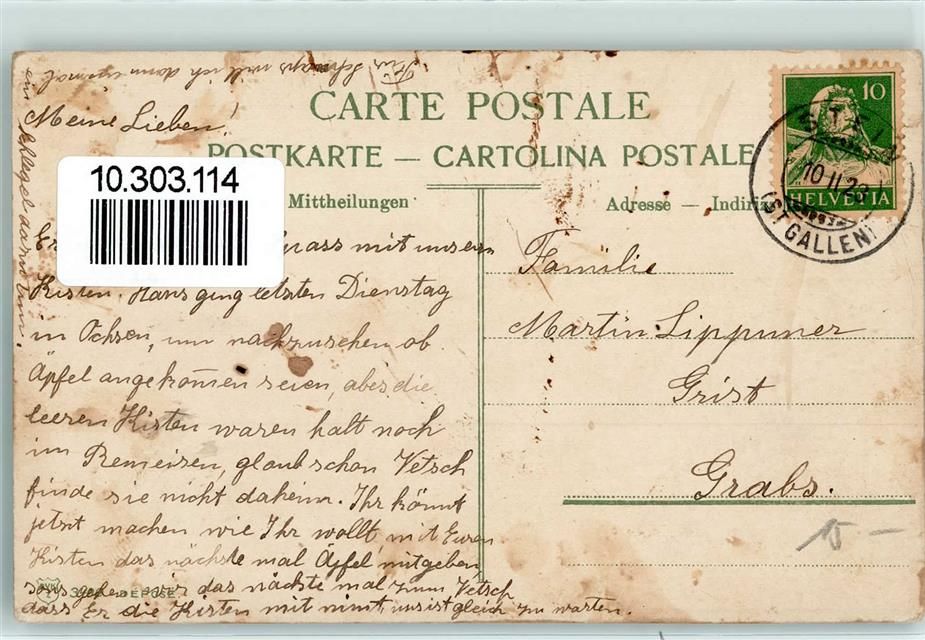 Für Schnaps will ich dann einmal
ein
CARTE POSTALE
POSTKARTE — CARTOLINA POSTALE
Mittheilungen
Adresse — Indiriz
10
HELVETIA
STEIN
10.II.23
(ST. GALLEN)
10.303.114
Meine Lieben!
mit unsern
Kisten. Hans ging letzten Dienstag
in Ochsen, um nachzusehen ob
Äpfel angekommen seien, aber die
leeren Kisten waren halt noch
im Remeisen, glaub schon Vetsch
finde sie nicht daheim. Ihr könnt
jetzt machen wie Ihr wollt, mit Euren
Kisten das nächste mal Äpfel mitgeben
sonst gehen wir das nächste mal zum Vetsch
dass Er die Kisten mit nimt, uns ist gleich zu warten.
DÉPOSÉ.
Familie
Martin Lippuner
Grist
Grabs.
15 —